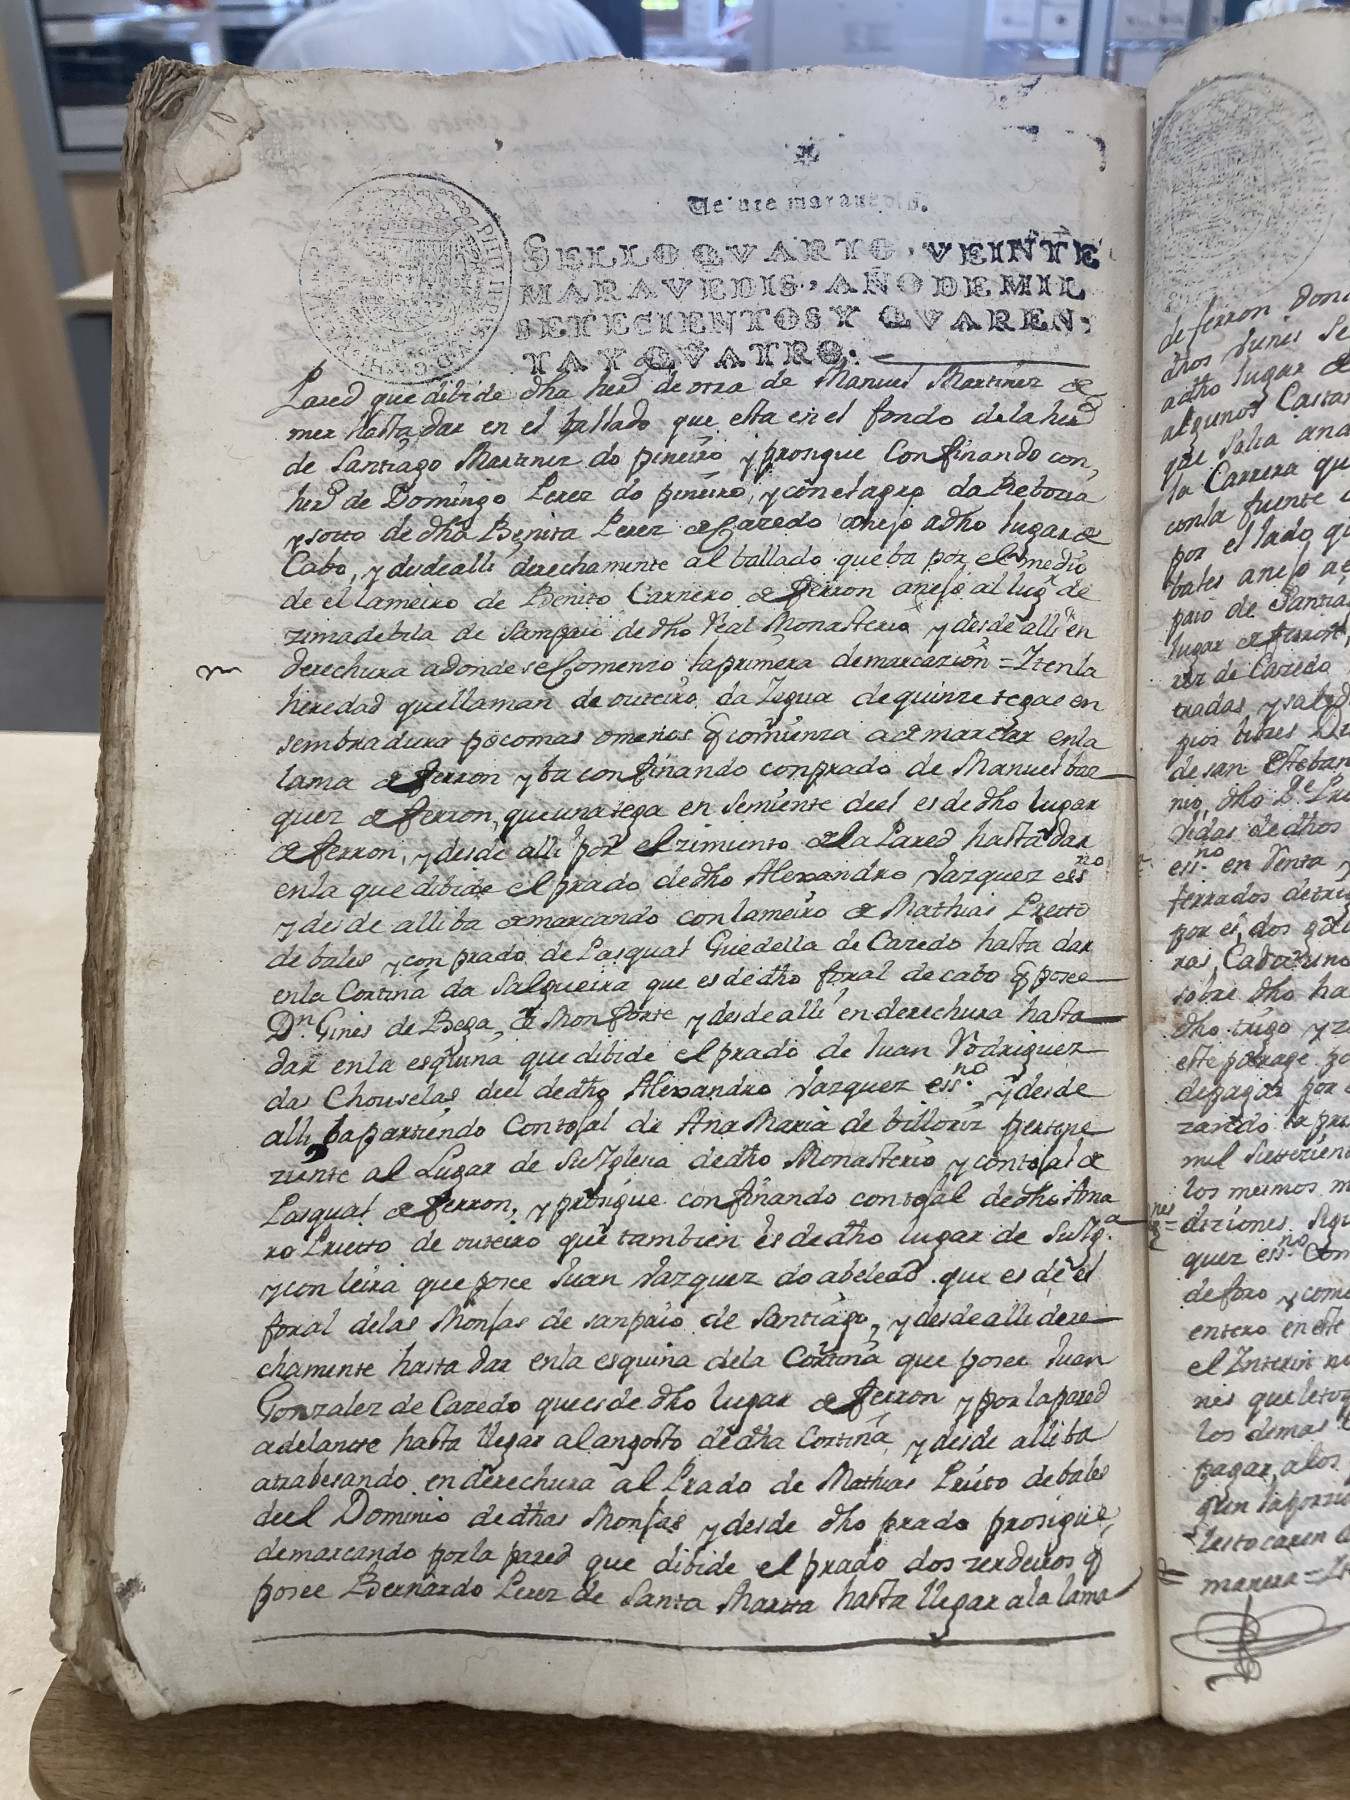 Veinte maravedis.
SELLO QVARTO, VEINTE
MARAVEDIS, AÑO DE MIL
SETECIENTOS Y QVAREN-
TA Y QVATRO.
Pared que dibide dha herd de otra de Manuel Martinez de
mer hasta dar en el ballado que esta en el fondo de la herd
de Santiago Martinez do pineiro y prosigue Confinando con
herd de Domingo Perez do pineiro, y con el agro da Reboria
y sotto de dha Benita Perez de Cazedo anejo a dho lugar de
Cabo, y desde alli derechamente al ballado que ba por el medio
de el lameiro de Benito Carnero de ferron anejo al lugr de
zimadebila de Sampaio de dho Real Monasterio y desde alli en
derechura adonde se Comenzo la primera demarcazion = Iten la
heredad que llaman de outeiro da Yegua de quinze tegas en
sembradura poco mas o menos q comienza a demarcar en la
lama de ferron y ba confinando con prado de Manuel baz
quez de ferron, que una tega en semiente de el es de dho lugar
de ferron, y desde alli por el zimiento de la Pared hasta dar
en la que dibide el prado de dho Alexandro Vazquez essno
y desde alli ba demarcando con lameiro de Mathias Prieto
de bales y con prado de Pasqual Guedella de Cazedo hasta dar
en la Cortiña da Salgueira que es de dho foral de cabo q posee
Dn. Gines de Bega de Monforte y desde alli en derechura hasta
dar en la esquina que dibide el prado de Juan Rodriguez
das Chouselas de el de dho Alexandro Vazquez essno. y desde
alli ba partiendo Con tojal de Ana Maria de billoriz pertene
ziente al Lugar de Su Yglesia de dho Monasterio y con tojal de
Pasqual de ferron, y prosigue confinando con tojal de dho Ama
ro Prietto de outeiro que tambien es de dho lugar de Su Yga.
y con leira que posee Juan Vazquez do abeledo que es de el
foral de las Monjas de sanpaio de Santiago, y desde alli dere
chamente hasta dar en la esquina de la Cortiña que posee Juan
Gonzalez de Cazedo que es de dho lugar de ferron y por la pared
adelante hasta llegar al angosto de dha Cortiña y desde alli ba
atrabesando en derechura al Prado de Mathias Prieto de bales
de el Dominio de dhas Monjas y desde dho prado prosigue
demarcando por la pared que dibide el prado dos zerdeiros q
posee Bernardo Perez de Santa Marta hasta llegar a la lama
de ferron
dhos
a dho lugar de
algunos
que salia
la Carrera que
con la fuente
por el lado
bales anejo
paio de Santia
lugar de ferron
de Cazedo
tradas y salid
pios libres
de san Esteban
nio, dho
bidas de dhos
essno en Venta
ferrados de
por es dos
ras, Cada uno
sobre dho
dho trigo y
este
de pagar por
zaredo la
mil setezien
los mesmos
diziones
quez essno
de foro y como
entero en este
el Interin
nes que
los demas
pagar, a los
quen
les tocaren
manera =